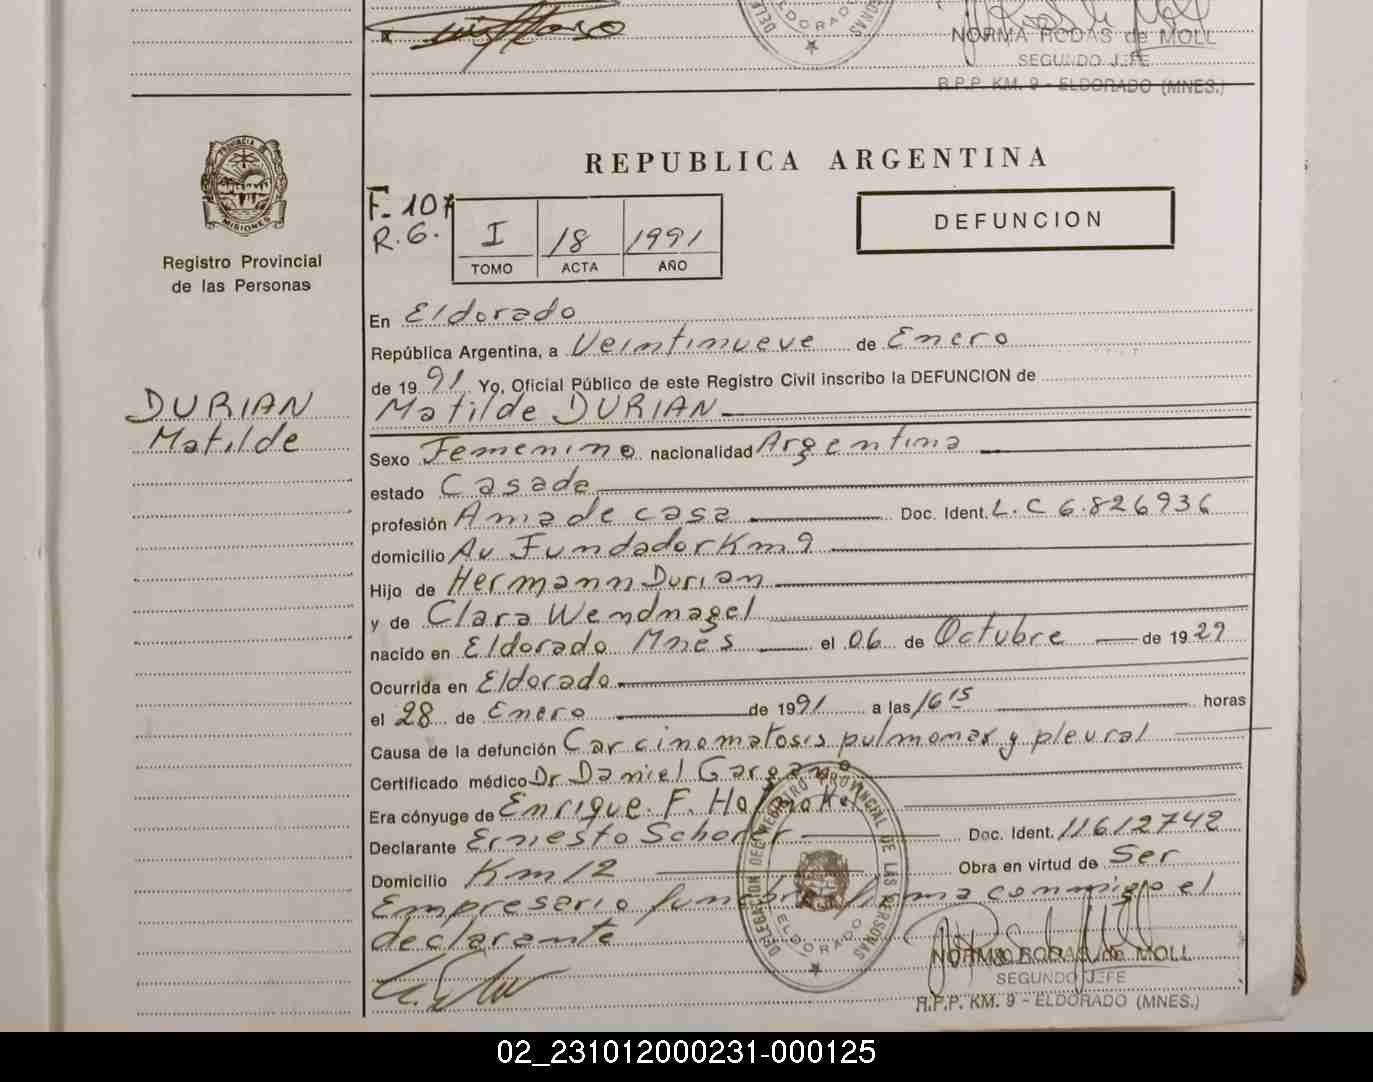 DELE
ELDORADO
SONAS
NORMA RODAS de MOLL
SEGUNDO JEFE
R.P.P. KM. 9 - ELDORADO (MNES.)
PROVINCIA DE
MISIONES
Registro Provincial
de las Personas
DURIAN
Matilde
REPUBLICA ARGENTINA
F. 107
R. G.
I 18 1991
TOMO ACTA AÑO
DEFUNCION
En Eldorado
República Argentina, a Veintinueve de Enero
de 19 91 Yo, Oficial Público de este Registro Civil inscribo la DEFUNCION de
Matilde DURIAN
Sexo Femenino nacionalidad Argentina
estado Casada
profesión Ama de casa Doc. Ident. L.C 6.826936
domicilio Av Fundador Km 9
Hijo de Hermann Durian
y de Clara Wendnagel
nacido en Eldorado Mnes el 06 de Octubre de 19 29
Ocurrida en Eldorado
el 28 de Enero de 19 91 a las 16 15 horas
Causa de la defunción Carcinomatosis pulmonar y pleural
Certificado médico Dr Daniel Gargano
Era cónyuge de Enrique F.
Declarante Ernesto Scherer Doc. Ident. 11612742
Domicilio Km 12 Obra en virtud de Ser
Empresario funebre firma conmigo el
declarante
DELEGACION DEL REGISTRO PROVINCIAL DE LAS PERSONAS
ELDORADO
NORMA RODAS de MOLL
SEGUNDO JEFE
R.P.P. KM. 9 - ELDORADO (MNES.)
02_231012000231-000125